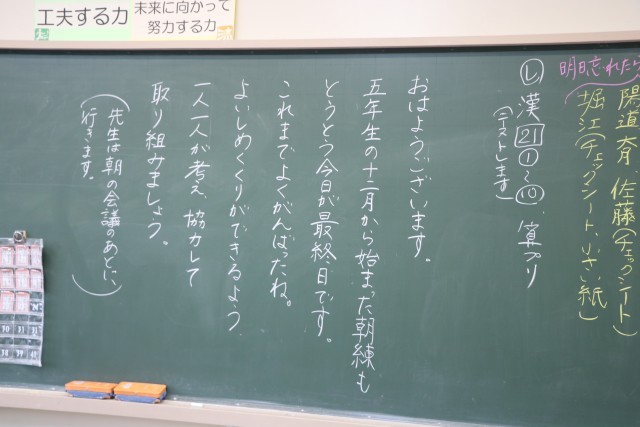 工夫する力
未来に向かって
努力する力
明日忘れたら
陽道斉、佐藤(チェックシート)
堀江(チェックシート、小さい紙)
㋹漢21①〜⑩、算プリ
(テストします)
おはようございます。
五年生の十二月から始まった朝練も
とうとう今日が最終日です。
これまでよくがんばったね。
よいしめくくりができるよう、
一人一人が考え、協力して
取り組みましょう。
(先生は朝の会議のあとに、
行きます。)